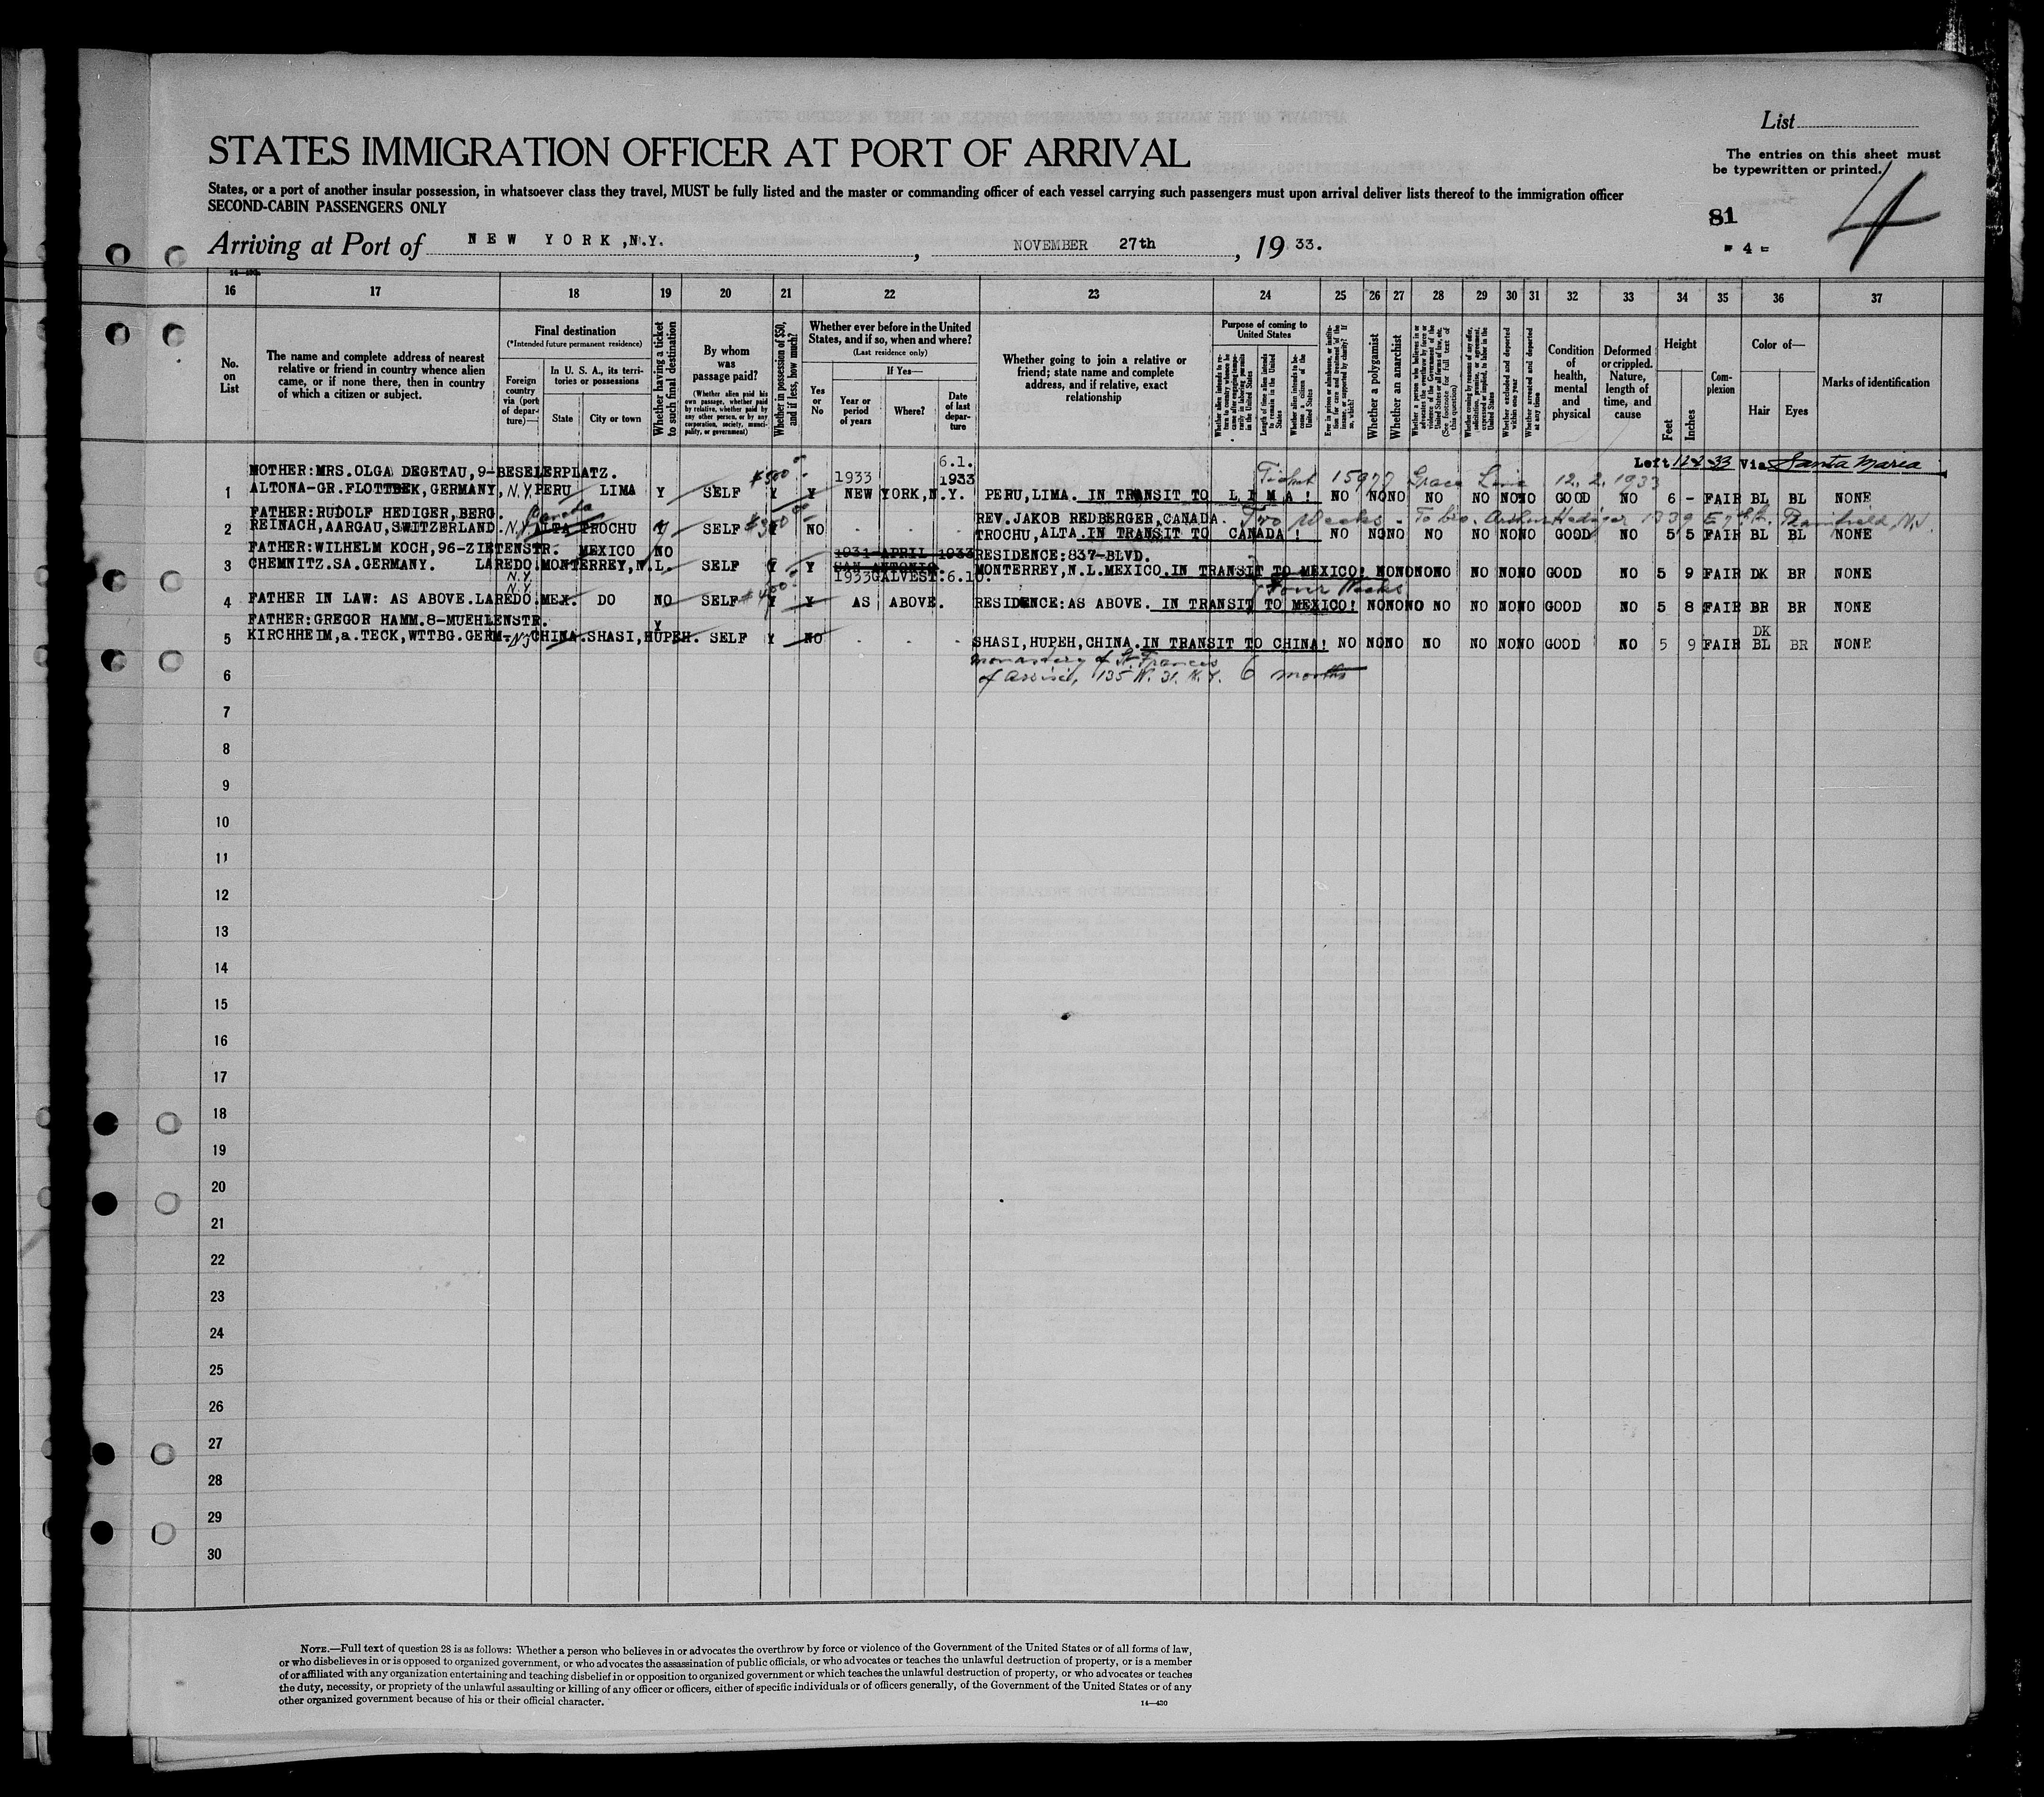 List
STATES IMMIGRATION OFFICER AT PORT OF ARRIVAL
The entries on this sheet must
be typewritten or printed.
States, or a port of another insular possession, in whatsoever class they travel, MUST be fully listed and the master or commanding officer of each vessel carrying such passengers must upon arrival deliver lists thereof to the immigration officer
SECOND-CABIN PASSENGERS ONLY
81
4
- 4 -
Arriving at Port of NEW YORK, N.Y. , NOVEMBER 27th , 19 33.
16 17 18 19 20 21 22 23 24 25 26 27 28 29 30 31 32 33 34 35 36 37
No. on List
The name and complete address of nearest relative or friend in country whence alien came, or if none there, then in country of which a citizen or subject.
Final destination
(*Intended future permanent residence)
Foreign country via (port of departure)—
In U. S. A., its territories or possessions
State
City or town
Whether having a ticket to such final destination
By whom was passage paid?
(Whether alien paid his own passage, whether paid by relative, whether paid by any other person, or by any corporation, society, municipality, or government)
Whether in possession of $50, and if less, how much?
Whether ever before in the United States, and if so, when and where?
(Last residence only)
Yes or No
If Yes—
Year or period of years
Where?
Date of last departure
Whether going to join a relative or friend; state name and complete address, and if relative, exact relationship
Purpose of coming to United States
Whether alien intends to return to country whence he came after engaging temporarily in laboring pursuits in the United States
Length of time alien intends to remain in the United States
Whether alien intends to become a citizen of the United States
Ever in prison or almshouse, or institution for care and treatment of the insane, or supported by charity? If so, which?
Whether a polygamist
Whether an anarchist
Whether a person who believes in or advocates the overthrow by force or violence of the Government of the United States or all forms of law, etc. (See footnote for full text of this question)
Whether coming by reasons of any offer, solicitation, promise, or agreement, expressed or implied, to labor in the United States
Whether excluded and deported within one year
Whether arrested and deported at any time
Condition of health, mental and physical
Deformed or crippled. Nature, length of time, and cause
Height
Feet
Inches
Complexion
Color of—
Hair
Eyes
Marks of identification
Left 12-2-33 Via Santa Maria
Ticket 15977 Grace Line 12.2.1933
MOTHER:MRS.OLGA DEGETAU,9-BESELERPLATZ. $500 1933 6.1. 1933
1 ALTONA-GR.FLOTTBEK,GERMANY, N.Y. PERU LIMA Y SELF Y Y NEW YORK,N.Y. PERU,LIMA. IN TRANSIT TO L I M A ! NO NO NO NO NO NO NO GOOD NO 6 - FAIR BL BL NONE
FATHER:RUDOLF HEDIGER,BERG. Canada $300 REV.JAKOB REDBERGER,CANADA. Two Weeks - To bro. Arthur Hediger 1339 E 7 St. Plainfield, N.J.
2 REINACH,AARGAU,SWITZERLAND. N.Y. ALTA TROCHU Y SELF Y NO - - - TROCHU,ALTA.IN TRANSIT TO CANADA ! NO NO NO NO NO NO NO GOOD NO 5 5 FAIR BL BL NONE
FATHER:WILHELM KOCH,96-ZIETENSTR. MEXICO NO 1931-APRIL 1933 RESIDENCE:837-BLVD.
3 CHEMNITZ.SA.GERMANY. LAREDO.MONTERREY,N.L. SELF Y Y SAN ANTONIO. MONTERREY,N.L.MEXICO.IN TRANSIT TO MEXICO! NO NO NO NO NO NO NO GOOD NO 5 9 FAIR DK BR NONE
N.Y. 1933 GALVEST.6.10. Four Weeks
N.Y. $400
4 FATHER IN LAW: AS ABOVE.LAREDO.MEX. DO NO SELF Y Y AS ABOVE. RESIDENCE:AS ABOVE. IN TRANSIT TO MEXICO! NO NO NO NO NO NO NO GOOD NO 5 8 FAIR BR BR NONE
FATHER:GREGOR HAMM.8-MUEHLENSTR. Y DK
5 KIRCHHEIM,a.TECK,WTTBG.GERM. NY CHINA.SHASI,HUPEH. SELF Y NO - - - SHASI,HUPEH,CHINA.IN TRANSIT TO CHINA! NO NO NO NO NO NO NO GOOD NO 5 9 FAIR BL BR NONE
Monastery of St. Francis
6 of Assisi, 135 W. 31. N.Y. 6 months
7
8
9
10
11
12
13
14
15
16
17
18
19
20
21
22
23
24
25
26
27
28
29
30
NOTE.—Full text of question 28 is as follows: Whether a person who believes in or advocates the overthrow by force or violence of the Government of the United States or of all forms of law,
or who disbelieves in or is opposed to organized government, or who advocates the assassination of public officials, or who advocates or teaches the unlawful destruction of property, or is a member
of or affiliated with any organization entertaining and teaching disbelief in or opposition to organized government or which teaches the unlawful destruction of property, or who advocates or teaches
the duty, necessity, or propriety of the unlawful assaulting or killing of any officer or officers, either of specific individuals or of officers generally, of the Government of the United States or of any
other organized government because of his or their official character.
14—430